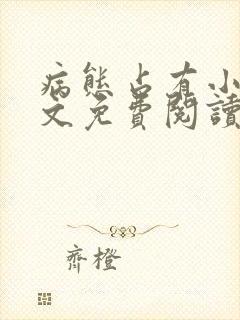 病態占有小
文免費閱讀
齊橙